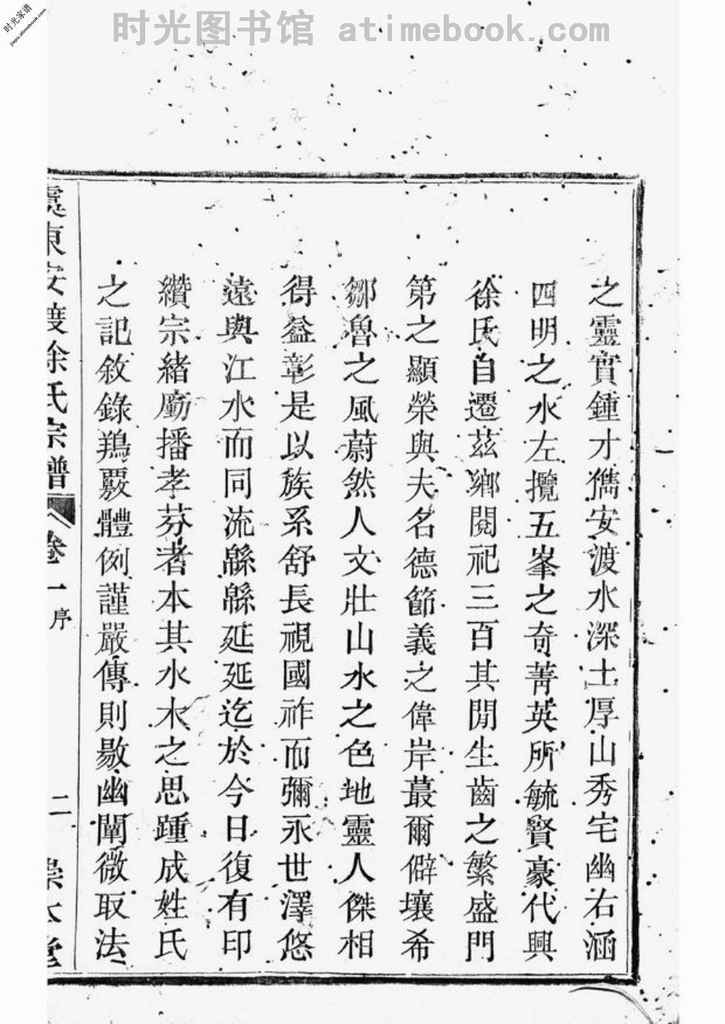 时光图书馆 atimebook.com
时光家谱
之靈實鍾才儁安渡水深土厚山秀宅幽右涵
四明之水左攬五峯之奇菁英所毓賢豪代興
徐氏自遷茲鄉閱祀三百其閒生齒之繁盛門
第之顯榮與夫名德節義之偉岸蕞爾僻壤希
鄒魯之風蔚然人文壯山水之色地靈人傑相
得益彰是以族系舒長視國祚而彌永世澤悠
遠與江水而同流緜緜延延迄於今日復有印
纘宗緒廟播孝芬者本其水木之思踵成姓氏
之記敘錄鴹覈體例謹嚴傳則敭幽闡微取法
虞東安渡徐氏宗譜 卷一 序 二 崇本堂